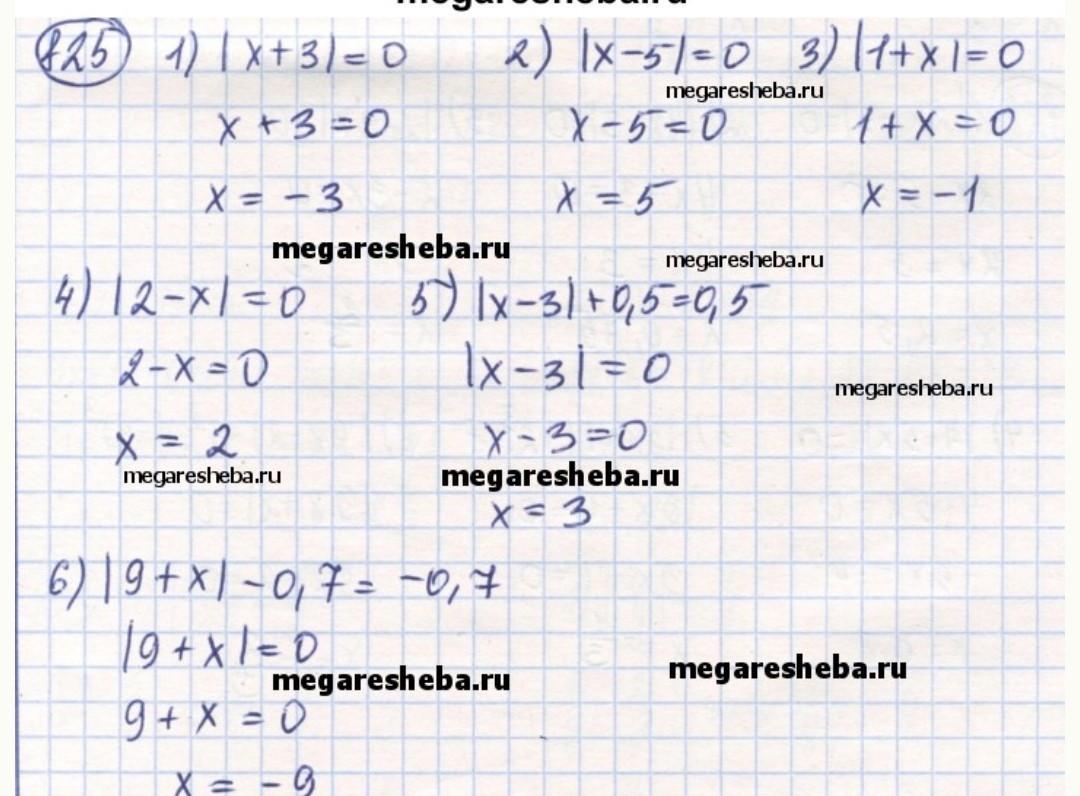 megaresheba.ru
725 1) |x+3|=0 2) |x-5|=0 3) |1+x|=0
megaresheba.ru
x+3=0 x-5=0 1+x=0
x=-3 x=5 x=-1
megaresheba.ru megaresheba.ru
4) |2-x|=0 5) |x-3|+0,5=0,5
2-x=0 |x-3|=0
megaresheba.ru
x=2 x-3=0
megaresheba.ru megaresheba.ru
x=3
6) |9+x|-0,7=-0,7
|9+x|=0
megaresheba.ru megaresheba.ru
9+x=0
x=-9